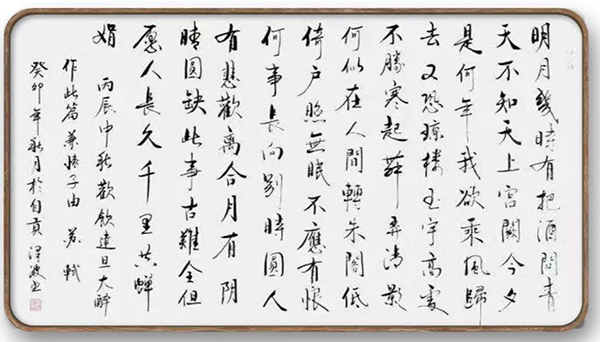 明月幾時有把酒問青
天不知天上宮闕今夕
是何年我欲乘風歸
去又恐瓊樓玉宇高處
不勝寒起舞弄清影
何似在人間轉朱閣低
倚户照無眠不應有恨
何事長向别時圓人
有悲歡離合月有陰
晴圓缺此事古難全但
愿人長久千里共嬋
娟 丙辰中秋歡飲達旦大醉
作此篇兼懷子由 苏軾
癸卯年秋月於自貢澤波书